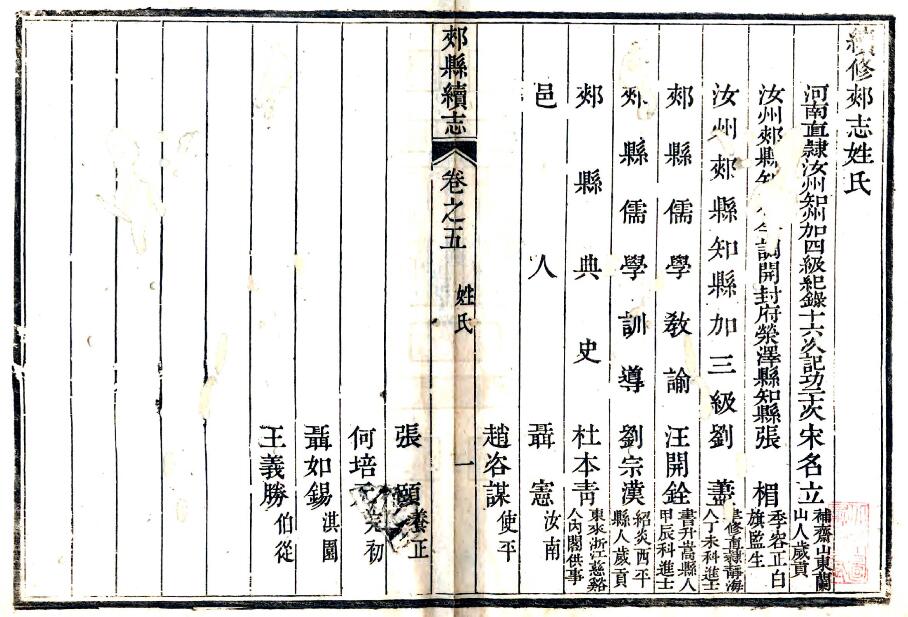 續修郟志姓氏
河南直隸汝州知州加四級紀錄十六次記功二次宋名立神齋山東蘭山人歲貢
汝州郟縣知調開封府滎澤縣知縣張楣季容正白旗監生
汝州郟縣知縣加三級劉藎修直隸靜海人丁未科進士
郟縣儒學教諭汪開銓書升嵩縣人甲辰科進士
郟縣儒學訓導劉宗漢紹炎西平縣人歲貢
郟縣典史杜本青東來浙江慈谿人內閣供事
邑人聶憲汝南
趙咨謀使平
郟縣續志 卷之五 姓氏 一
張頤養正
何培初
聶如錫淇園
王義勝伯從